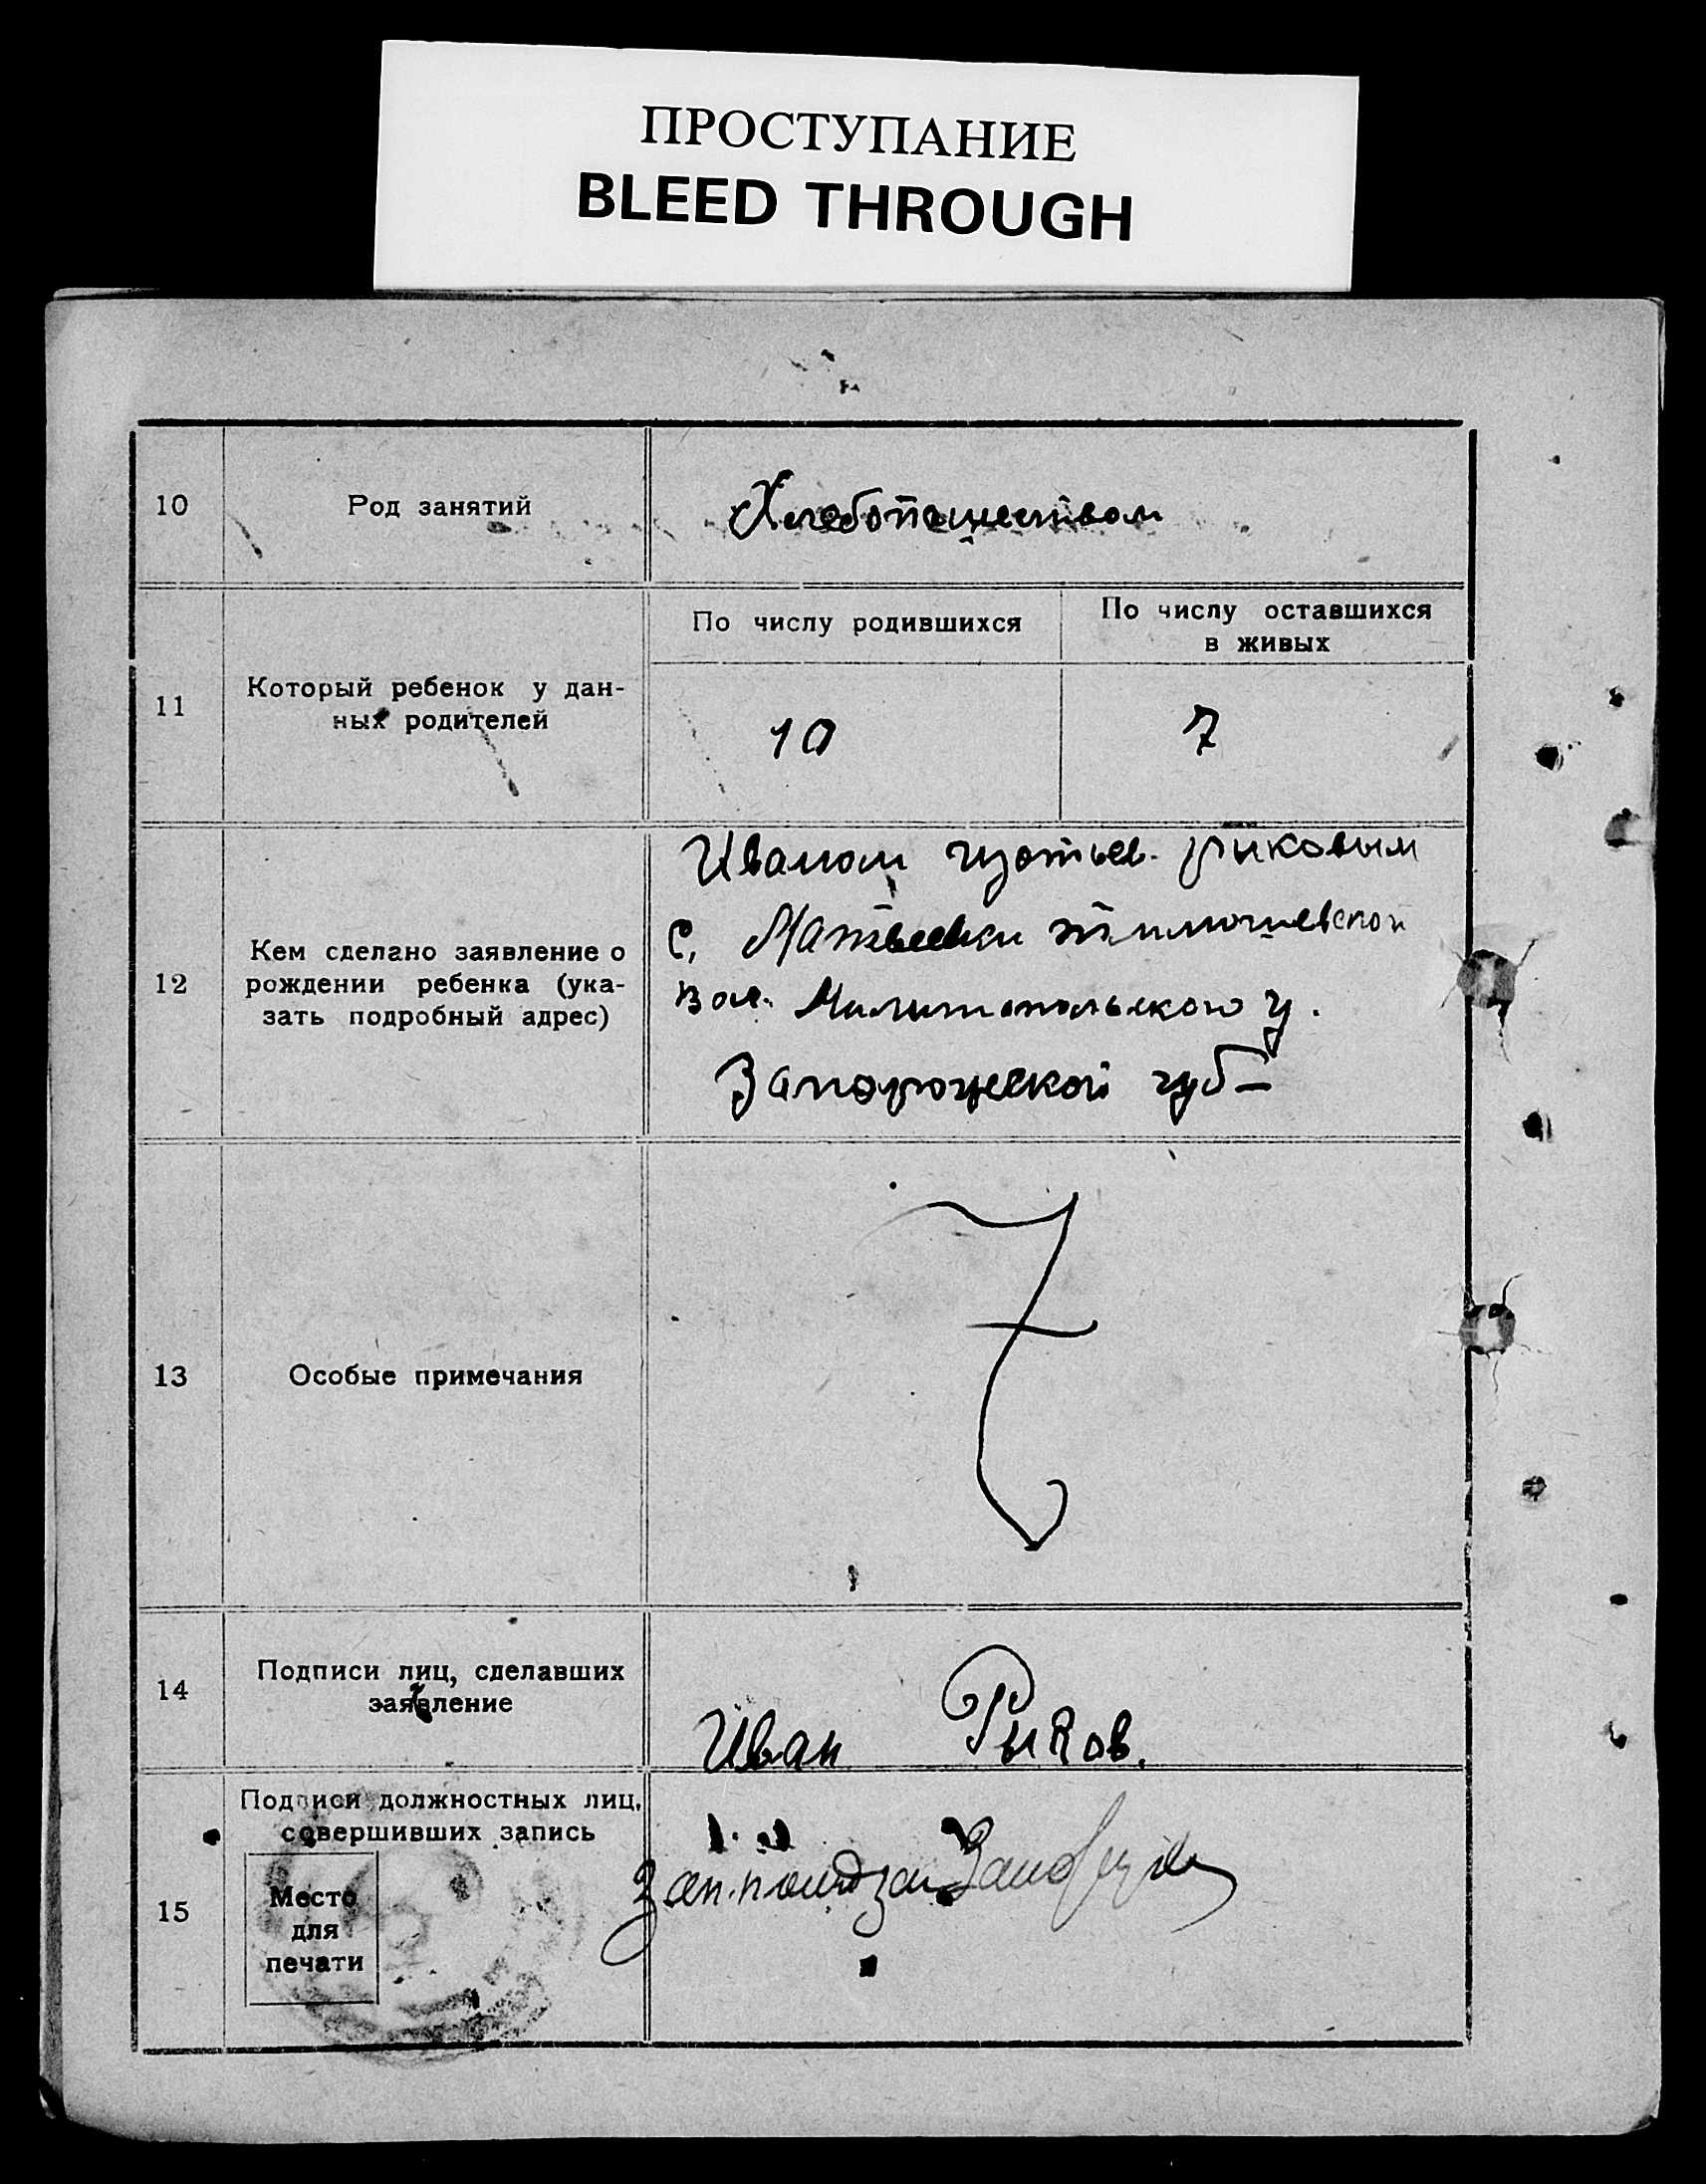 ПРОСТУПАНИЕ
BLEED THROUGH
10
Род занятий
Хлебопашеством
11
Который ребенок у дан-
ных родителей
По числу родившихся
По числу оставшихся
в живых
10
7
12
Кем сделано заявление о
рождении ребенка (ука-
зать подробный адрес)
Иваном Рыковым
С. Матвеевки
Вол. Мелитопольского у.
Запорожской губ
13
Особые примечания
14
Подписи лиц, сделавших
заявление
Иван Рыков.
15
Подписи должностных лиц,
совершивших запись
Место
для
печати